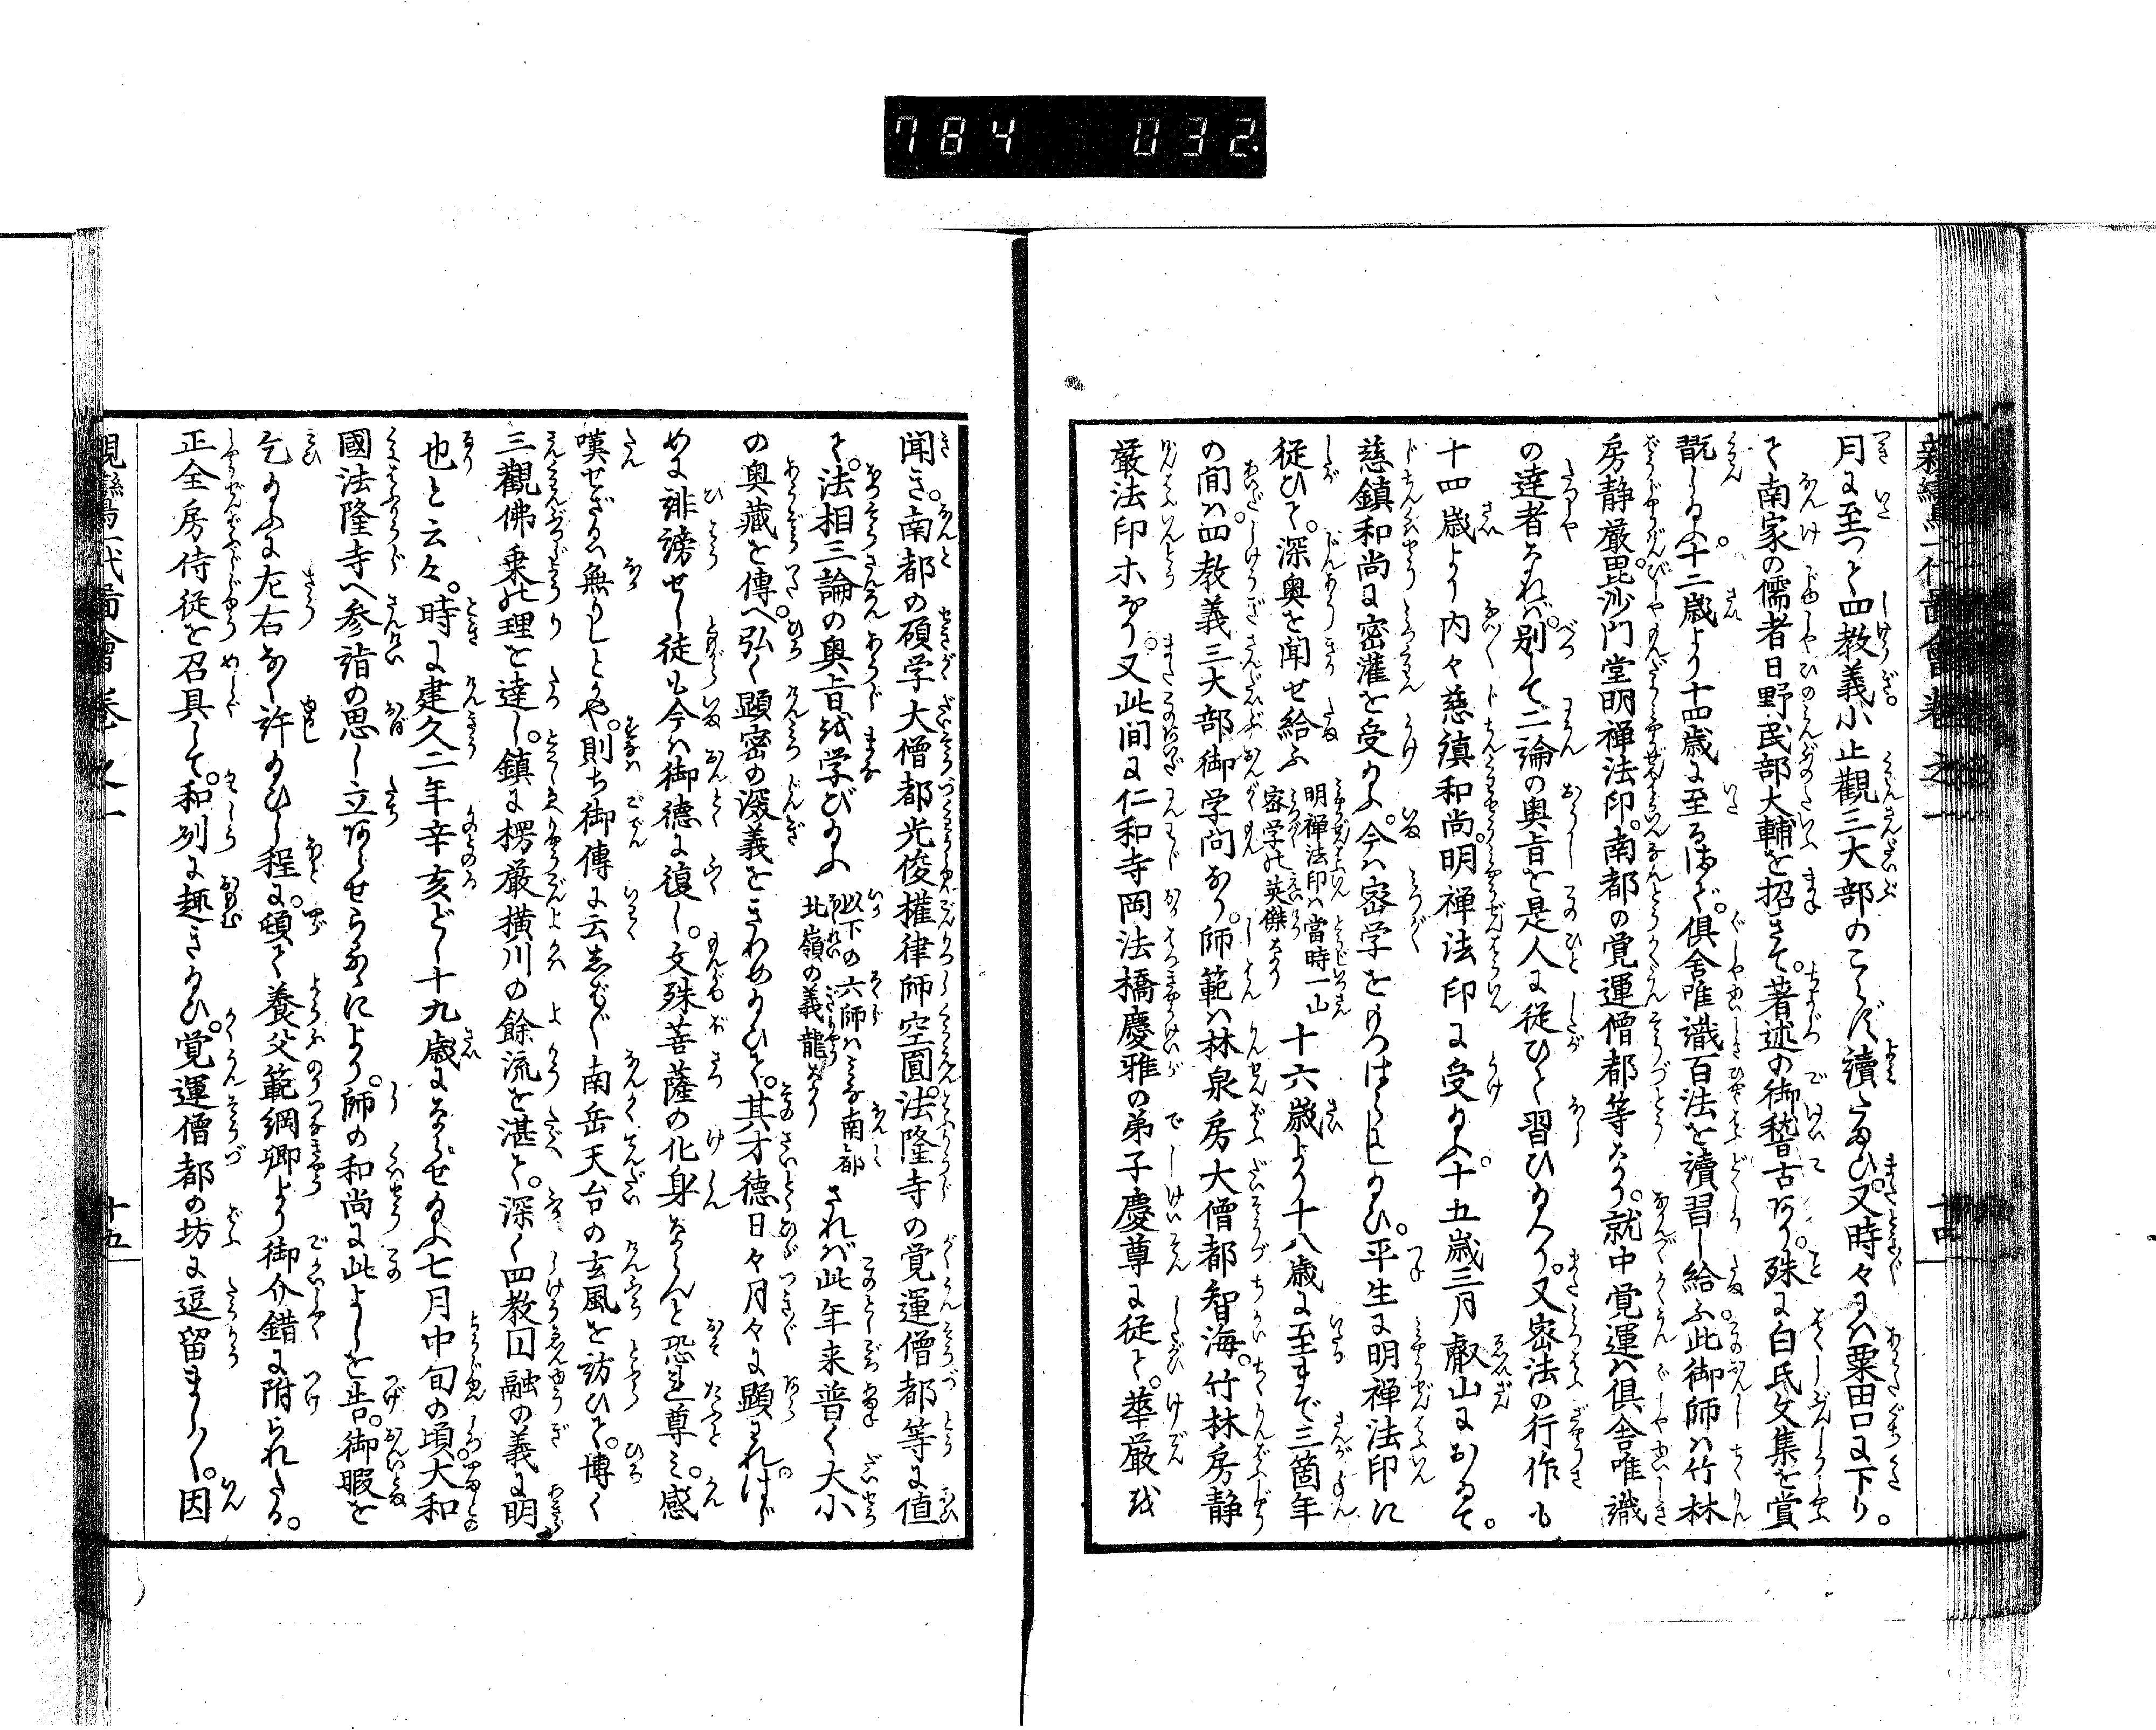 784 032
月に至つて四教義小止觀三大部のこらず讀たまひ。又時々には粟田口に下り。
て南家の儒者日野民部大輔を招きて。著述の御稽古あり。殊に白氏文集を賞
翫し給ふ。十二歳より十四歳に至るまで。倶舎唯識百法を讀習し給ふ。此御師ハ竹林
房静厳。毘沙門堂明禅法印。南都の覚運僧都等なり。就中覚運ハ倶舎唯識
の達者なれバ。別して二論の奥旨を是人に従ひて習ひ給へり。又密法の行作も
十四歳より内々慈鎮和尚。明禅法印に受給ふ。十五歳三月叡山において。
慈鎮和尚に密灌を受給ふ。今ハ密学をもつはらにし給ひ。平生に明禅法印に
従ひて。深奥を聞せ給ふ
明禅法印ハ當時一山
密学の英傑なり
十六歳より十八歳に至まで三箇年
の間ハ。四教義三大部御学問あり。師範ハ林泉房大僧都智海。竹林房静
厳法印ホなり。又此間に仁和寺岡法橋慶雅の弟子慶尊に従て。華厳を
新編鸞一代啚會巻之一
十四
聞き。南都の碩学大僧都光俊權律師空圓。法隆寺の覚運僧都等に値
て。法相三論の奥旨を学び給ふ
以下の六師ハミな南都
北嶺の義龍なり
されバ此年来普く大小
の奥藏を傳へ。弘く顕密の深義をきわめ給ひて。其才徳日々月々に顕れけれバ。
めに誹謗せし徒も今ハ御徳に復し。文殊菩薩の化身ならんと恐れ尊ミ。感
嘆せざるハ無りしとかや。則ち御傳に云しば〳〵南岳天台の玄風を訪ひて。博く
三觀佛乗の理を達し。鎮に楞厳横川の餘流を湛て。深く四教円融の義に明
也と云々。時に建久二年辛亥どし十九歳にならせ給ふ七月中旬の頃。大和
國法隆寺へ参詣の思し立あらせらるゝにより。師の和尚に此よしを告。御暇を
乞給ふに左右なく許給ひし程に。頓て養父範綱卿より御介錯に附られたる。
正全房侍從を召具して。和刕に趣き給ひ。覚運僧都の坊に逗留まし〳〵。因
親鸞一代啚會巻之一
十五